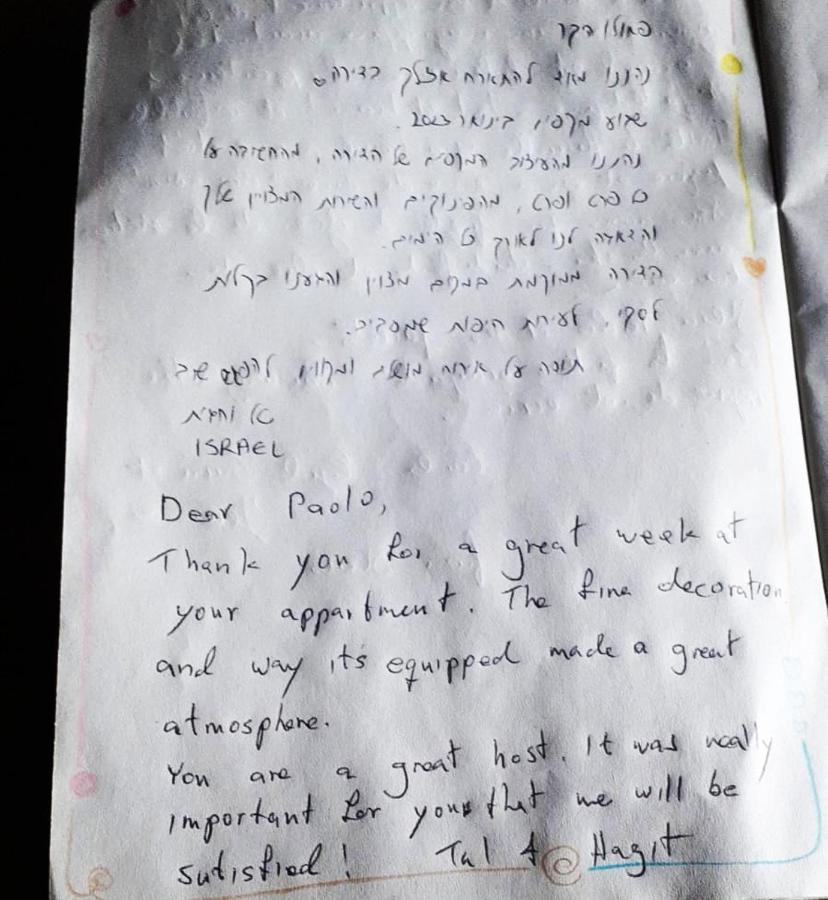 פאולו היקר
נהננו מאוד להתארח אצלך בדירה
שבוע מקסים בינואר 2023.
נהננו מהעיצוב המקסים של הדירה, מהחשיבה על
כל פרט ופרט, מהפינוקים והשירות המצויין שלך
והדאגה לנו לאורך כל הימים.
הדירה ממוקמת במקום מצוין והגענו בקלות
לסקי, לעיירות היפות שמסביב.
תודה על אירוח מושלם ומקווים להפגש שוב
טל וחגית
ISRAEL
Dear Paolo,
Thank you for a great week at
your appartment. The fine decoration
and way it's equipped made a great
atmosphere.
You are a great host. It was really
important for you that we will be
sutisfied! Tal & Hagit